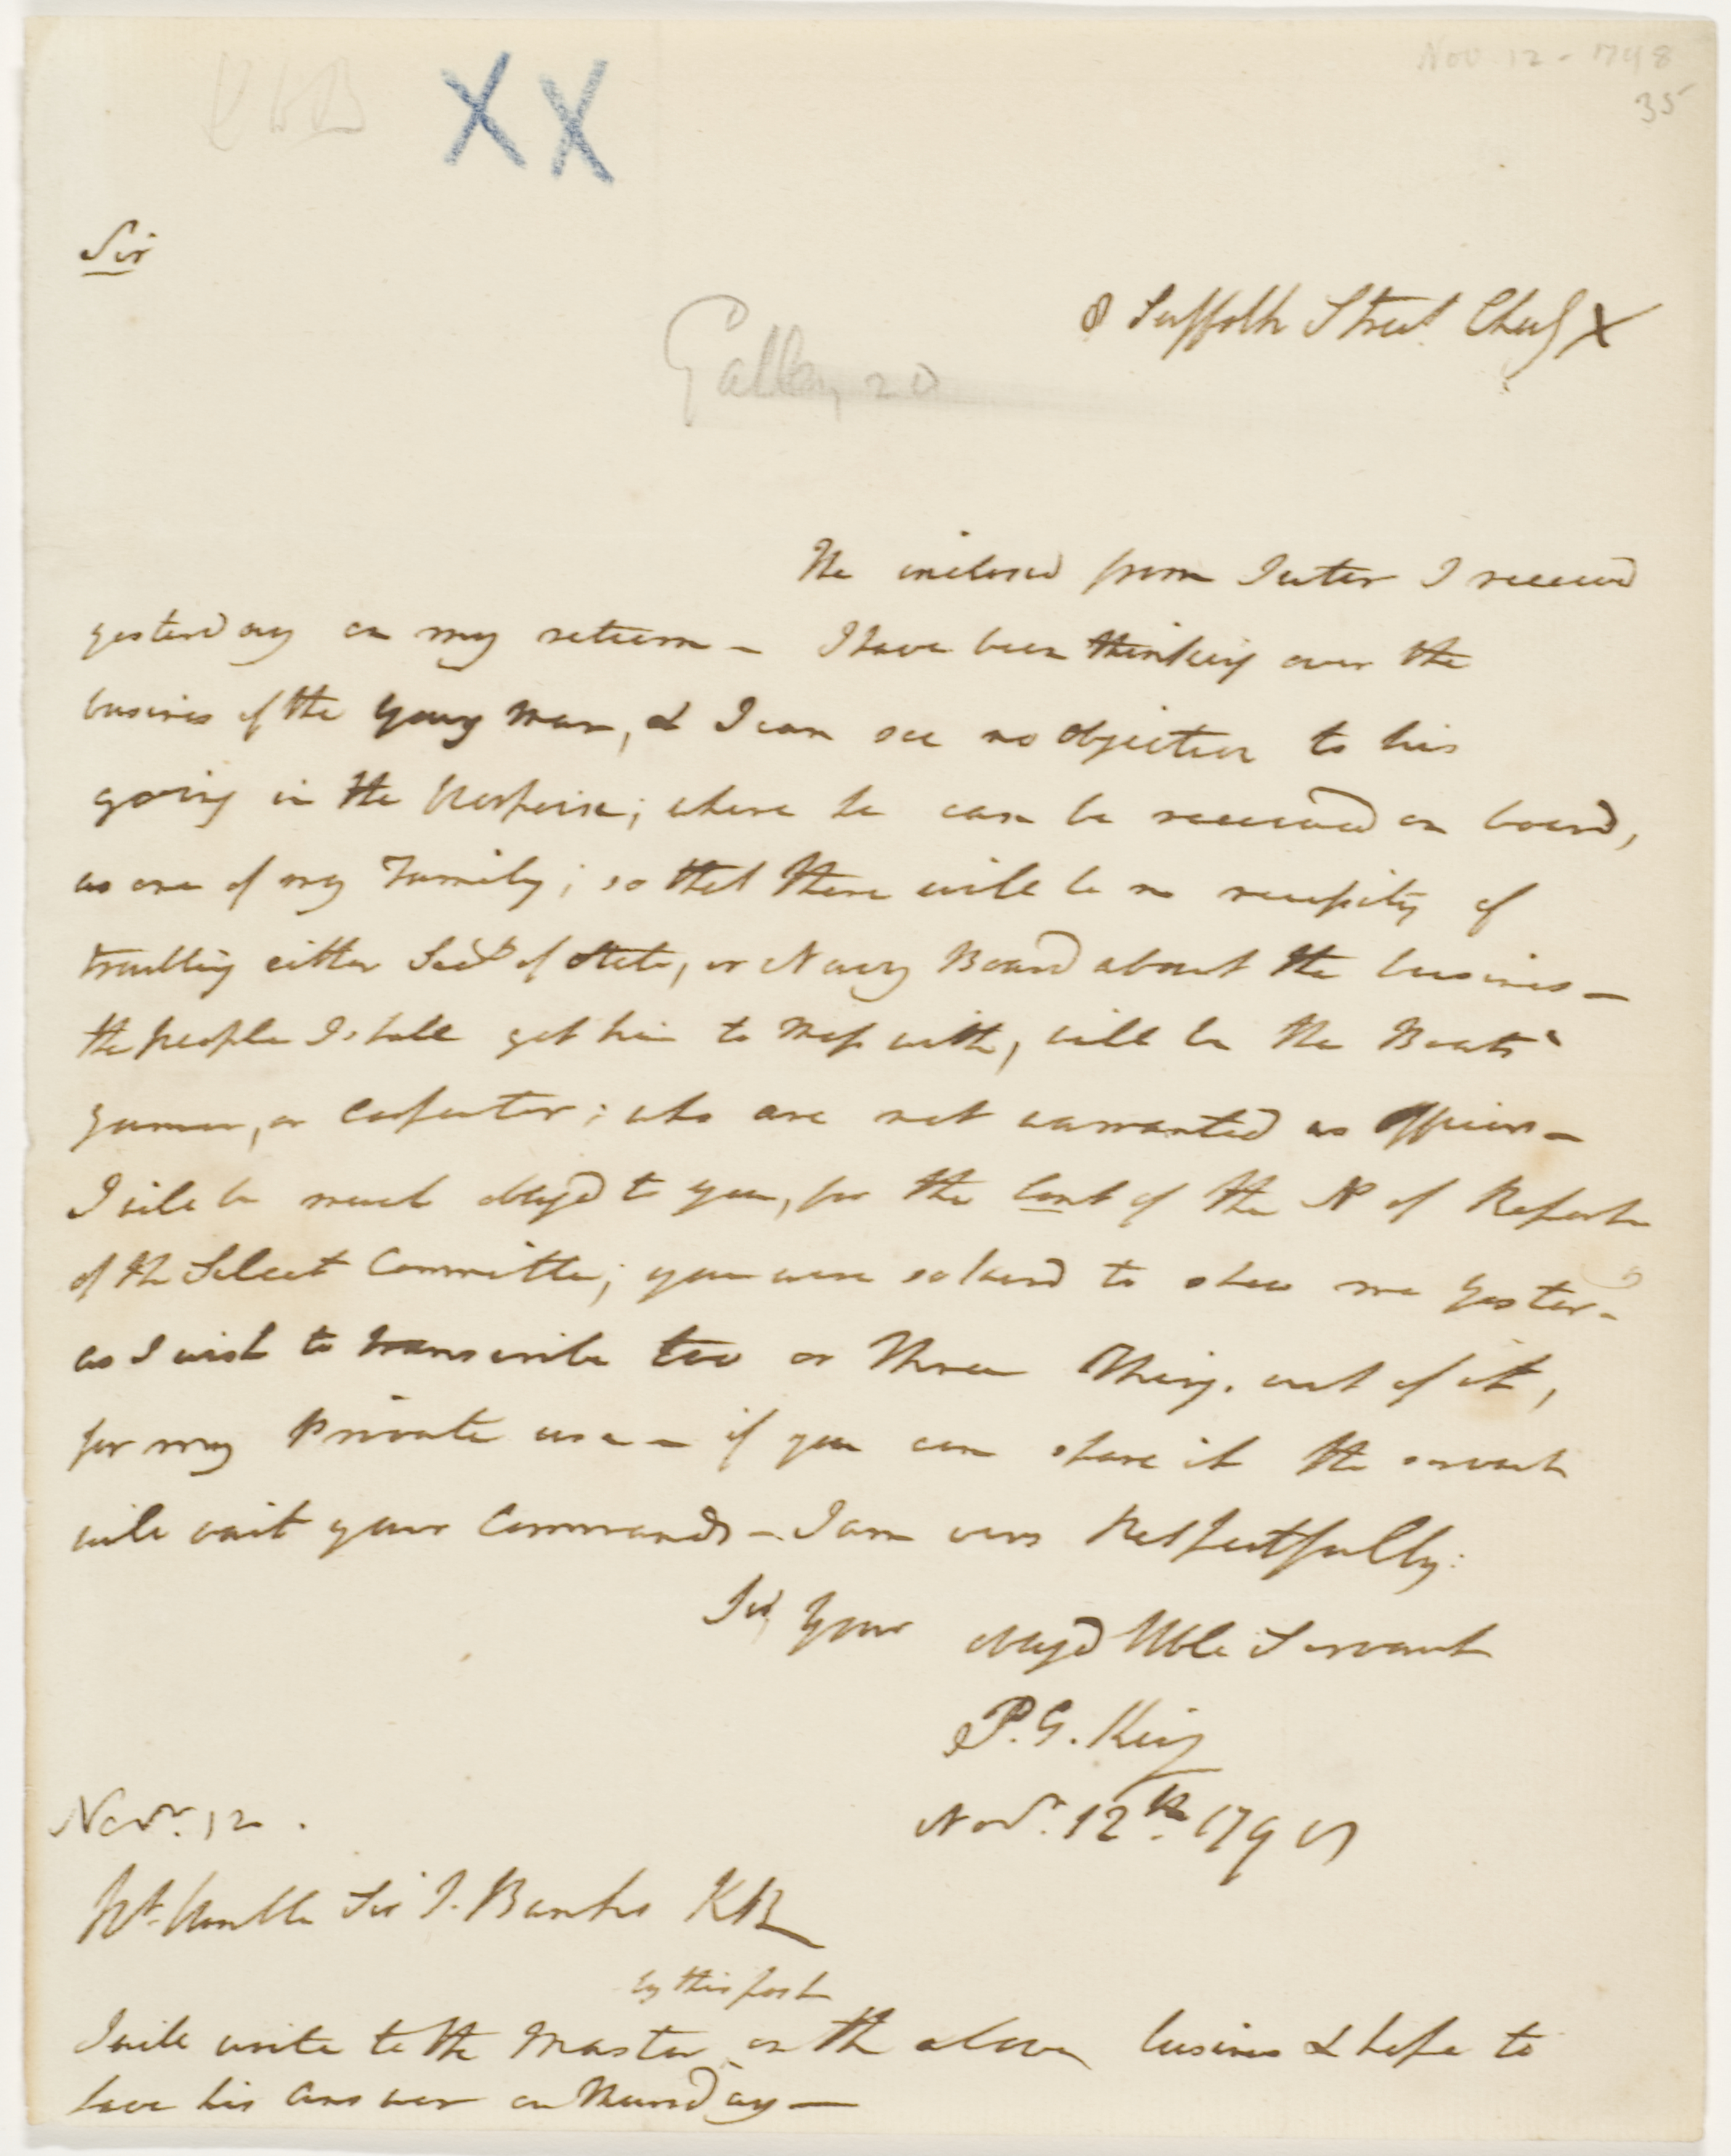 Nov 12 - 1798
35
XX
Sir
8 Suffolk Street Chas X
Galley 20
The inclosed from Suter I received
yesterday on my return - I have been thinking over the
busines of the Young Man, & I can see no objection to his
going in the Porpoise; where he can be received on board,
as one of my Family; so that there will be no necessity of
troubling either Secy of State, or Navy Board about the busines -
the people I shall get him to Mess with, will be the Boats
gunner, or Carpenter; who are not warranted as Officers -
I will be much obliged to you, for the of the No of Reports
of the Select Committee; you were so kind to shew me Yester-
as I wish to transcribe two or three Things out of it,
for my Private use - if you can spare it the servant
will wait your Commands - I am very Respectfully:
Sir, Your obliged Hble Servant
P. G. King
Novr. 12th. 1798
Novr. 12.
Rt. Honble Sir J. Banks KB
by this post
I will write to the Master on the above busines & hope to
have his answer on Thursday -